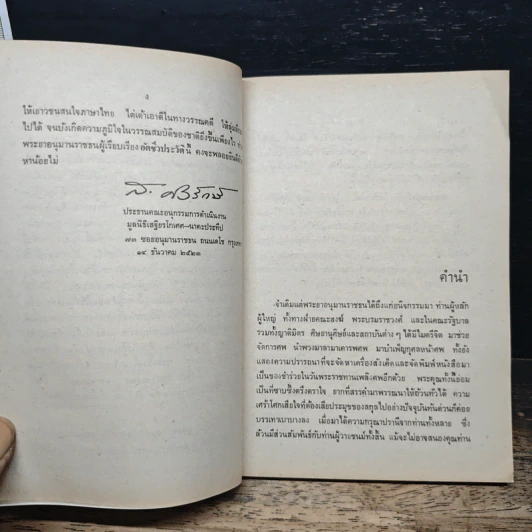 ๔
ให้เยาวชนสนใจภาษาไทย ไต่เต้าเอาดีในทางวรรณคดี ให้
ไปได้ จนบังเกิดความภูมิใจในวรรณสมบัติของชาติยิ่งขึ้นเพียงไร
พระยาอนุมานราชธนผู้เรียบเรียง อัตชีวประวัตินี้ คงจะพลอยยินดี
หาน้อยไม่
ส. ศิวรักษ์
ประธานคณะอนุกรรมการดำเนินงาน
มูลนิธิเสฐียรโกเศศ-นาคะประทีป
๗๓ ซอยอนุมานราชธน ถนนเดโช
๑๔ ธันวาคม ๒๕๒๓
คำนำ
จำเดิมแต่พระยาอนุมานราชธนได้ถึงแก่อนิจกรรมมา ท่านผู้หลัก
ผู้ใหญ่ ทั้งทางฝ่ายคณะสงฆ์ พระบรมราชวงศ์ และในคณะรัฐบาล
รวมทั้งญาติมิตร ศิษยานุศิษย์และสถาบันต่าง ๆ ได้มีไมตรีจิต มาช่วย
จัดการศพ นำพวงมาลามาเคารพศพ มาบำเพ็ญกุศลหน้าศพ ทั้งยัง
แสดงความปรารถนาที่จะจัดหาเครื่องสังเค็ดและจัดพิมพ์หนังสือมา
เป็นของชำร่วยในวันพระราชทานเพลิงศพอีกด้วย พระคุณทั้งนี้ย่อม
เป็นที่ซาบซึ้งตรึงตราใจ ยากที่สรรคำมาพรรณนาให้ถ้วนทั่วได้ ความ
เศร้าโศกเสียใจที่ต้องเสียประมุขของสกุลไปอย่างปัจจุบันทันด่วนก็ค่อย
บรรเทาเบาบางลง เมื่อมาได้ความกรุณาปรานีจากท่านทั้งหลาย ซึ่ง
ล้วนมีส่วนสัมพันธ์กับท่านผู้วายชนม์ทั้งสิ้น แม้จะไม่อาจสนองคุณท่าน